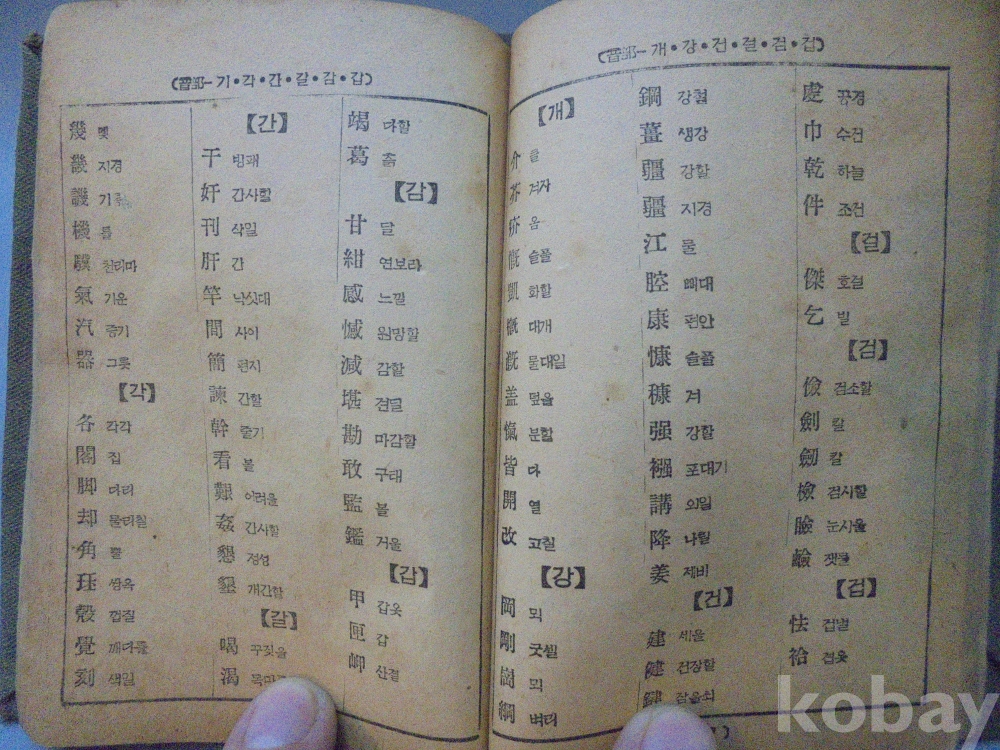 (音部—기•각•간•갈•감•갑)
幾 몇
畿 지경
譏
機 틀
驥 천리마
氣 기운
汽 증기
器 그릇
【각】
各 각각
閣 집
脚 다리
却 물리칠
角 뿔
珏 쌍옥
殼 껍질
覺 깨다를
刻 색일
【간】
干 방패
奸 간사할
刊 삭일
肝 간
竿 낙싯대
間 사이
簡 편지
諫 간할
幹 줄기
看 볼
艱 어려울
姦 간사할
懇 정성
墾 개간할
【갈】
喝 꾸짖을
渴
竭 다할
葛 츩
【감】
甘 달
紺 연보라
感 느낄
憾 원망할
減 감할
堪 견딜
勘 마감할
敢 구태
監 볼
鑑 거울
【갑】
甲 갑옷
匣 갑
岬 산결
(音部—개•강•건•걸•검•겁)
【개】
介
芥 겨자
疥 옴
慨 슬플
凱 화할
槪 대개
漑 물대일
盖 덮을
愾 분할
皆 다
開 열
改 고칠
【강】
岡 뫼
剛 굿셀
崗 뫼
綱 벼리
鋼 강철
薑 생강
彊 강할
疆 지경
江 물
腔 뼈대
康 편안
慷 슬플
穅 겨
强 강할
襁 포대기
講 외일
降 나릴
姜 제비
【건】
建 세울
健 건장할
鍵 잠을쇠
虔 공경
巾 수건
乾 하늘
件 조건
【걸】
傑 호걸
乞 빌
【검】
儉 검소할
劍 칼
劒 칼
檢 검시할
瞼 눈시울
鹼 잿물
【겁】
怯 겁별
袷 겹옷
kobay